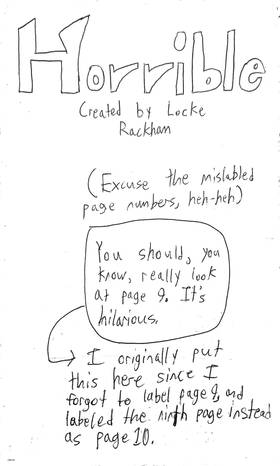 Horrible
Created by Locke
Rackham
(Excuse the mislabled
page numbers, heh-heh)
You should, you
know, really look
at page 9. It's
hilarious.
I originally put
this here since I
forgot to label page 9, and
labeled the ninth page instead
as page 10.